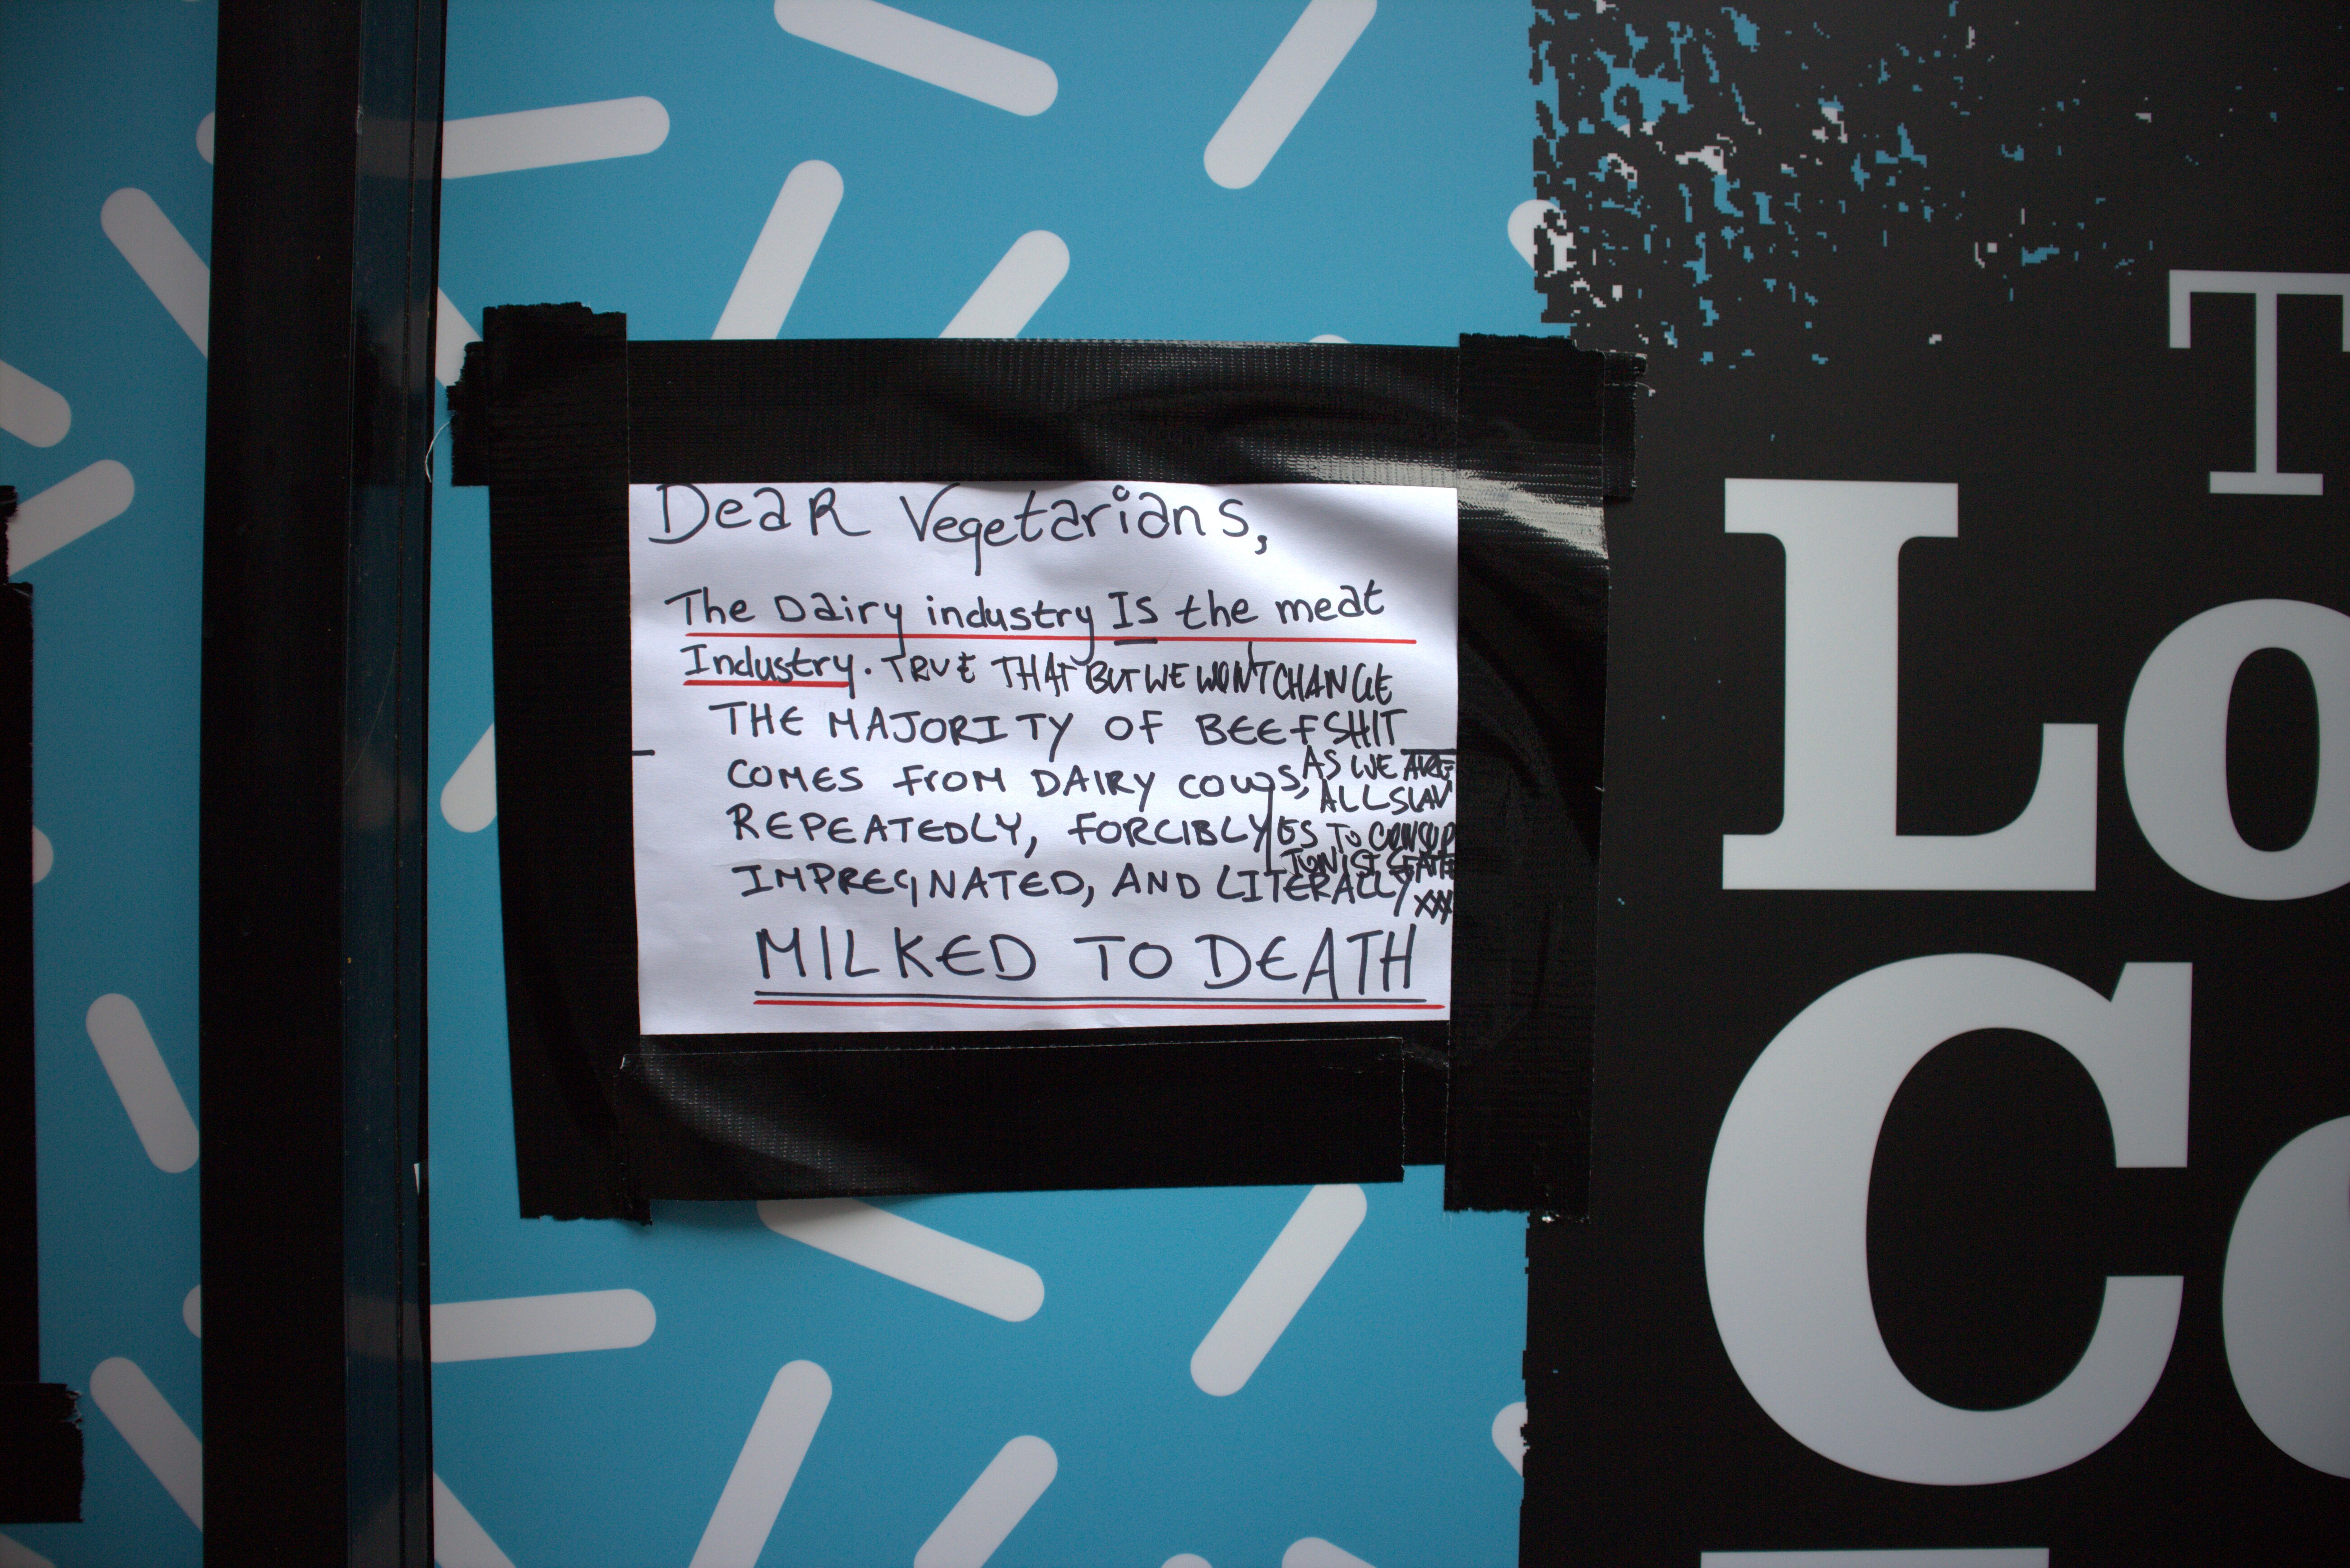 Dear Vegetarians,
The Dairy industry Is the meat
Industry. TRUE THAT BUT WE WON'T CHANGE
THE MAJORITY OF BEEF SHIT
COMES FROM DAIRY COWS, AS WE ARE
ALL SLAV
REPEATEDLY, FORCIBLY ES TO CONSUP
TIONIST STATE
IMPREGNATED, AND LITERALLY XXX
MILKED TO DEATH
T
Lo
Co